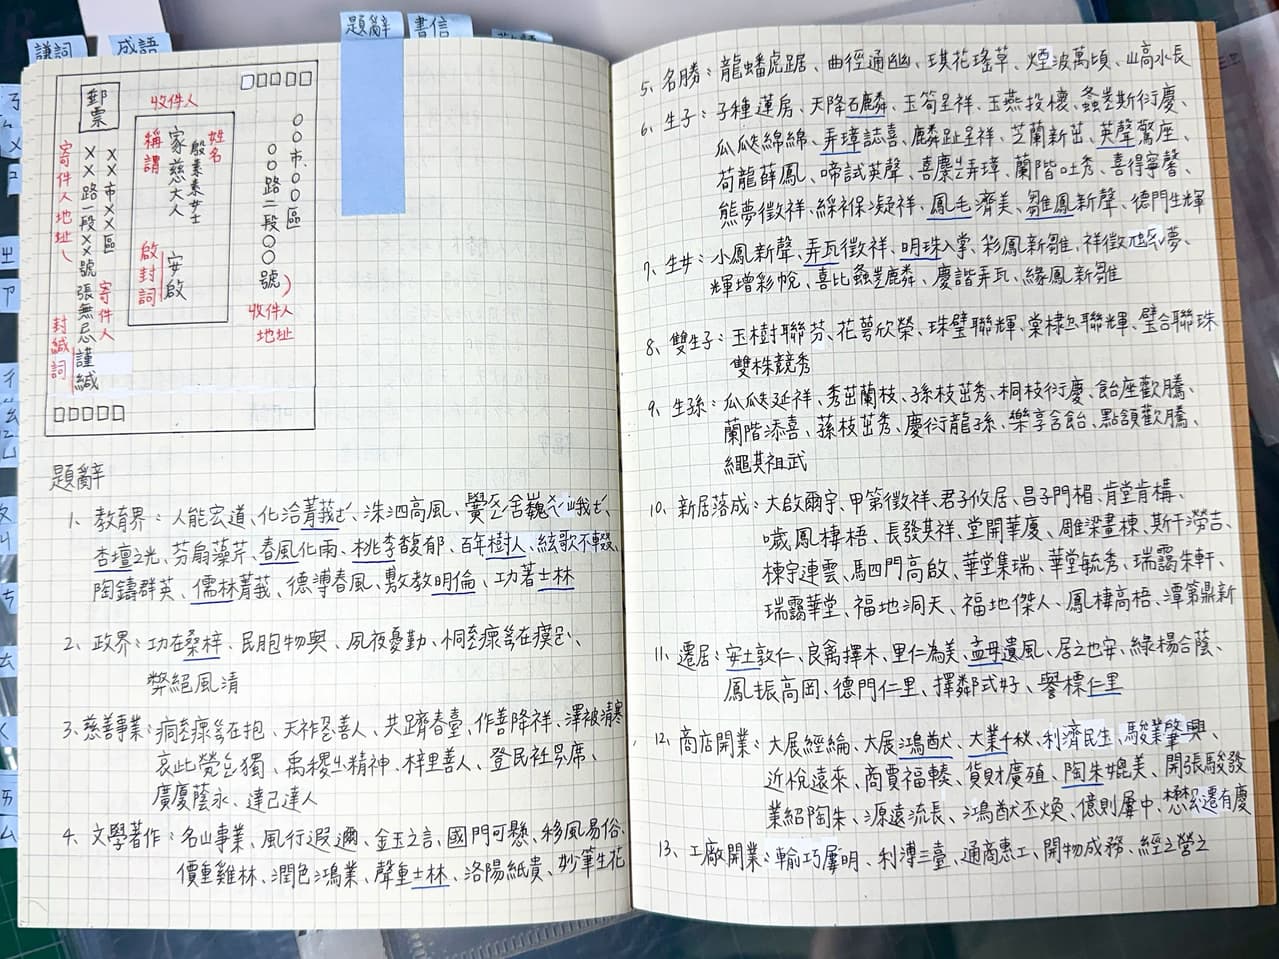 謙詞
成語
題辭
書信
郵票
收件人
姓名
稱謂
殷素素女士
家慈大人
安啟
啟封詞
○○市○○區
○○路二段○○○號
收件人
地址
寄件人地址
××市××區
××路一段××號
寄件人
張無忌
謹緘
封緘詞
題辭
1、教育界：人能宏道、化洽菁莪、洙泗高風、黌舍巍峨、
杏壇之光、芬扇藻芹、春風化雨、桃李馥郁、百年樹人、絃歌不輟、
陶鑄群英、儒林菁莪、德溥春風、敷教明倫、功著士林
2、政界：功在桑梓、民胞物與、夙夜憂勤、恫瘝在
弊絕風清
3、慈善事業：痌瘝在抱、天祚善人、共躋春臺、作善降祥、澤被清寒
哀此煢獨、禹稷精神、梓里善人、登民衽席、
廣廈蔭永、達己達人
4、文學著作：名山事業、風行遐邇、金玉之言、國門可懸、移風易俗、
價重雞林、潤色鴻業、聲重士林、洛陽紙貴、妙筆生花
5、名勝：龍蟠虎踞、曲徑通幽、琪花瑤草、煙波萬頃、山高水長
6、生子：子種蓮房、天降石麟、玉筍呈祥、玉燕投懷、螽斯衍慶、
瓜瓞綿綿、弄璋誌喜、麟趾呈祥、芝蘭新茁、英聲驚座、
荀龍薛鳳、啼試英聲、喜慶弄璋、蘭階吐秀、喜得寧馨、
熊夢徵祥、綵褓凝祥、鳳毛濟美、雛鳳新聲、德門生輝
7、生女：小鳳新聲、弄瓦徵祥、明珠入掌、彩鳳新雛、祥徵虺夢、
輝增彩帨、喜比螽麟、慶諧弄瓦、緣鳳新雛
8、雙生子：玉樹聯芬、花萼欣榮、珠璧聯輝、棠棣聯輝、璧合聯珠
雙株競秀
9、生孫：瓜瓞延祥、秀茁蘭枝、孫枝茁秀、桐枝衍慶、飴座歡騰、
蘭階添喜、蓀枝茁秀、慶衍龍孫、樂享含飴、點頷歡騰、
繩其祖武
10、新居落成：大啟爾宇、甲第徵祥、君子攸居、昌子門楣、肯堂肯構、
歲鳳棲梧、長發其祥、堂開華廈、雕梁畫棟、斯干澇吉、
棟宇連雲、駟門高啟、華堂集瑞、華堂毓秀、瑞靄朱軒、
瑞靄華堂、福地洞天、福地傑人、鳳棲高梧、潭第鼎新
11、遷居：安土敦仁、良禽擇木、里仁為美、孟母遺風、居之也安、綠楊合蔭、
鳳振高岡、德門仁里、擇鄰式好、譽標仁里
12、商店開業：大展經綸、大展鴻猷、大業千秋、利濟民生、駿業肇興、
近悅遠來、商賈福輳、貨財廣殖、陶朱媲美、開張駿發
業紹陶朱、源遠流長、鴻猷丕煥、億則屢中、懋遷有慶
13、工廠開業：輸巧屢明、利溥三臺、通商惠工、開物成務、經之營之